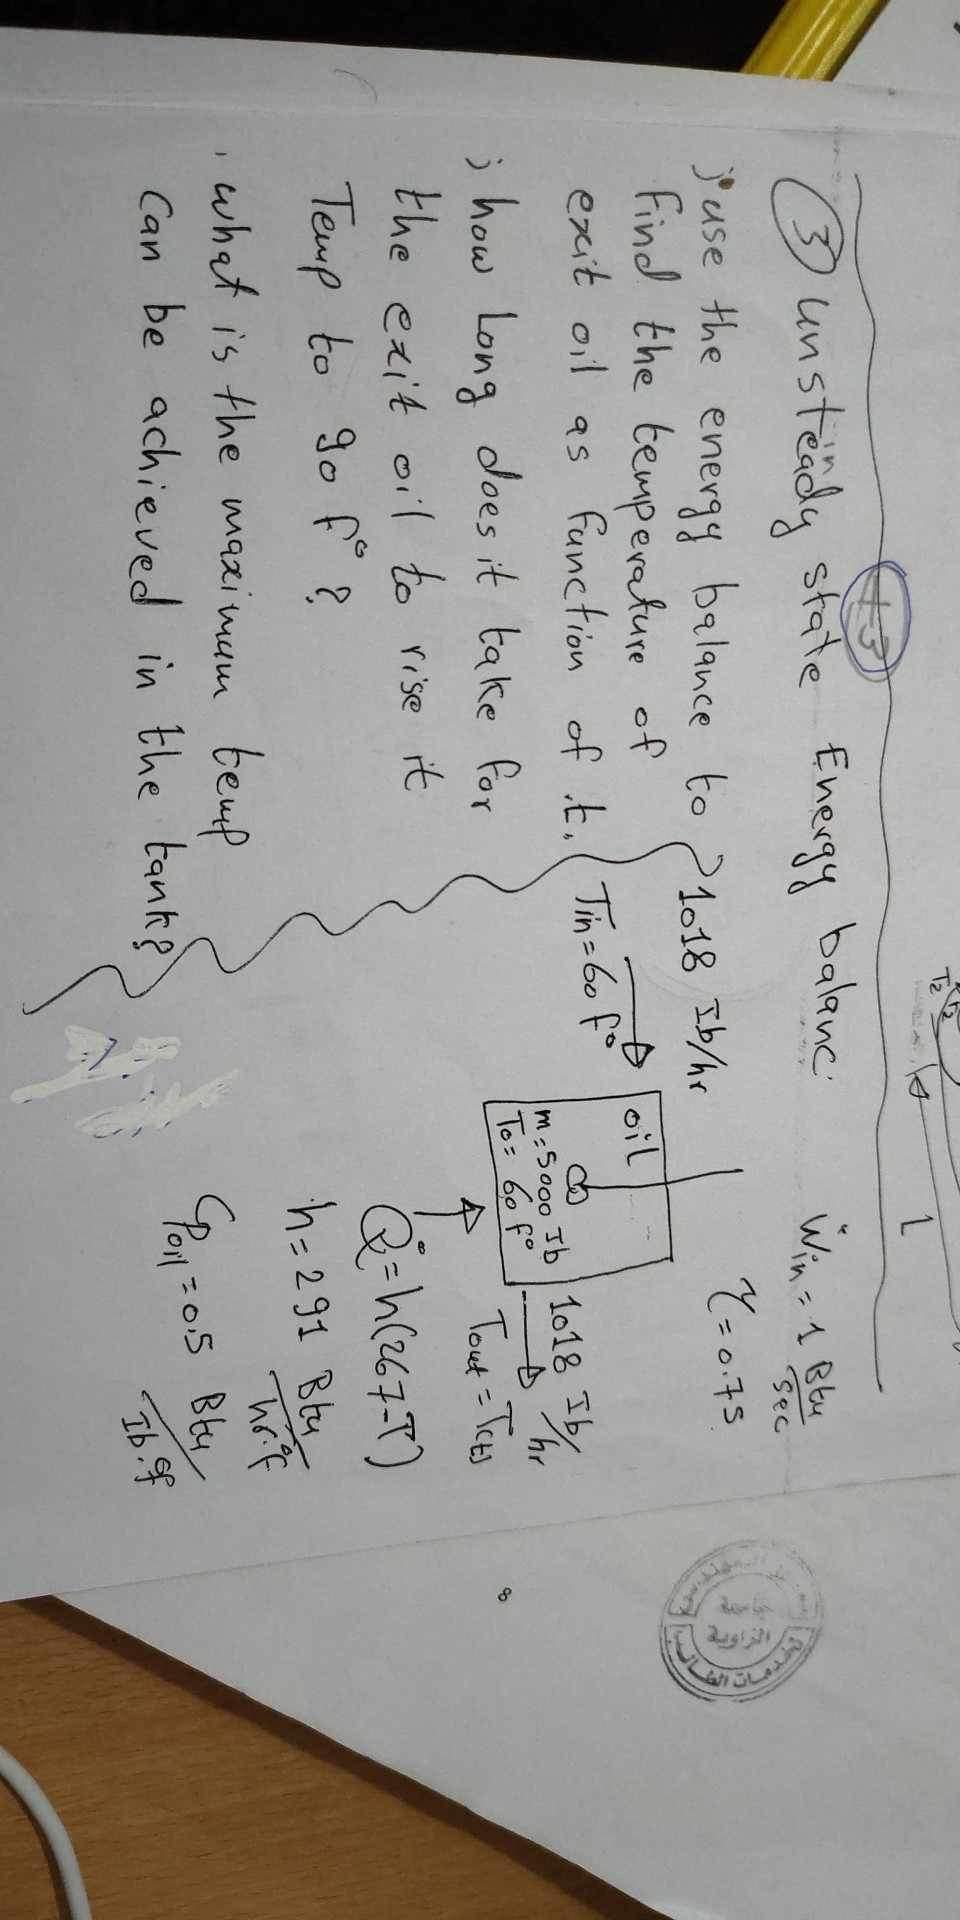 +3
③ unsteady state Energy balanc.
in
; use the energy balance to
find the temperature of
exit oil as function of t.
; how Long does it take for
the exit oil to rise it
Temp to 90 f° ?
, what is the maximum temp
can be achieved in the tank?
Ẇin = 1 Btu/sec
η = 0.75
1018 Ib/hr
Tin = 60 f°
oil
m = 5000 Ib
To = 60 f°
1018 Ib/hr
Tout = T(t)
Q° = h(267-T)
h = 291 Btu/hr.°f
Cpoil = 0.5 Btu/Ib.°f
T2
r2
L
8
جامعة
الزاوية
لخدمات الطالب